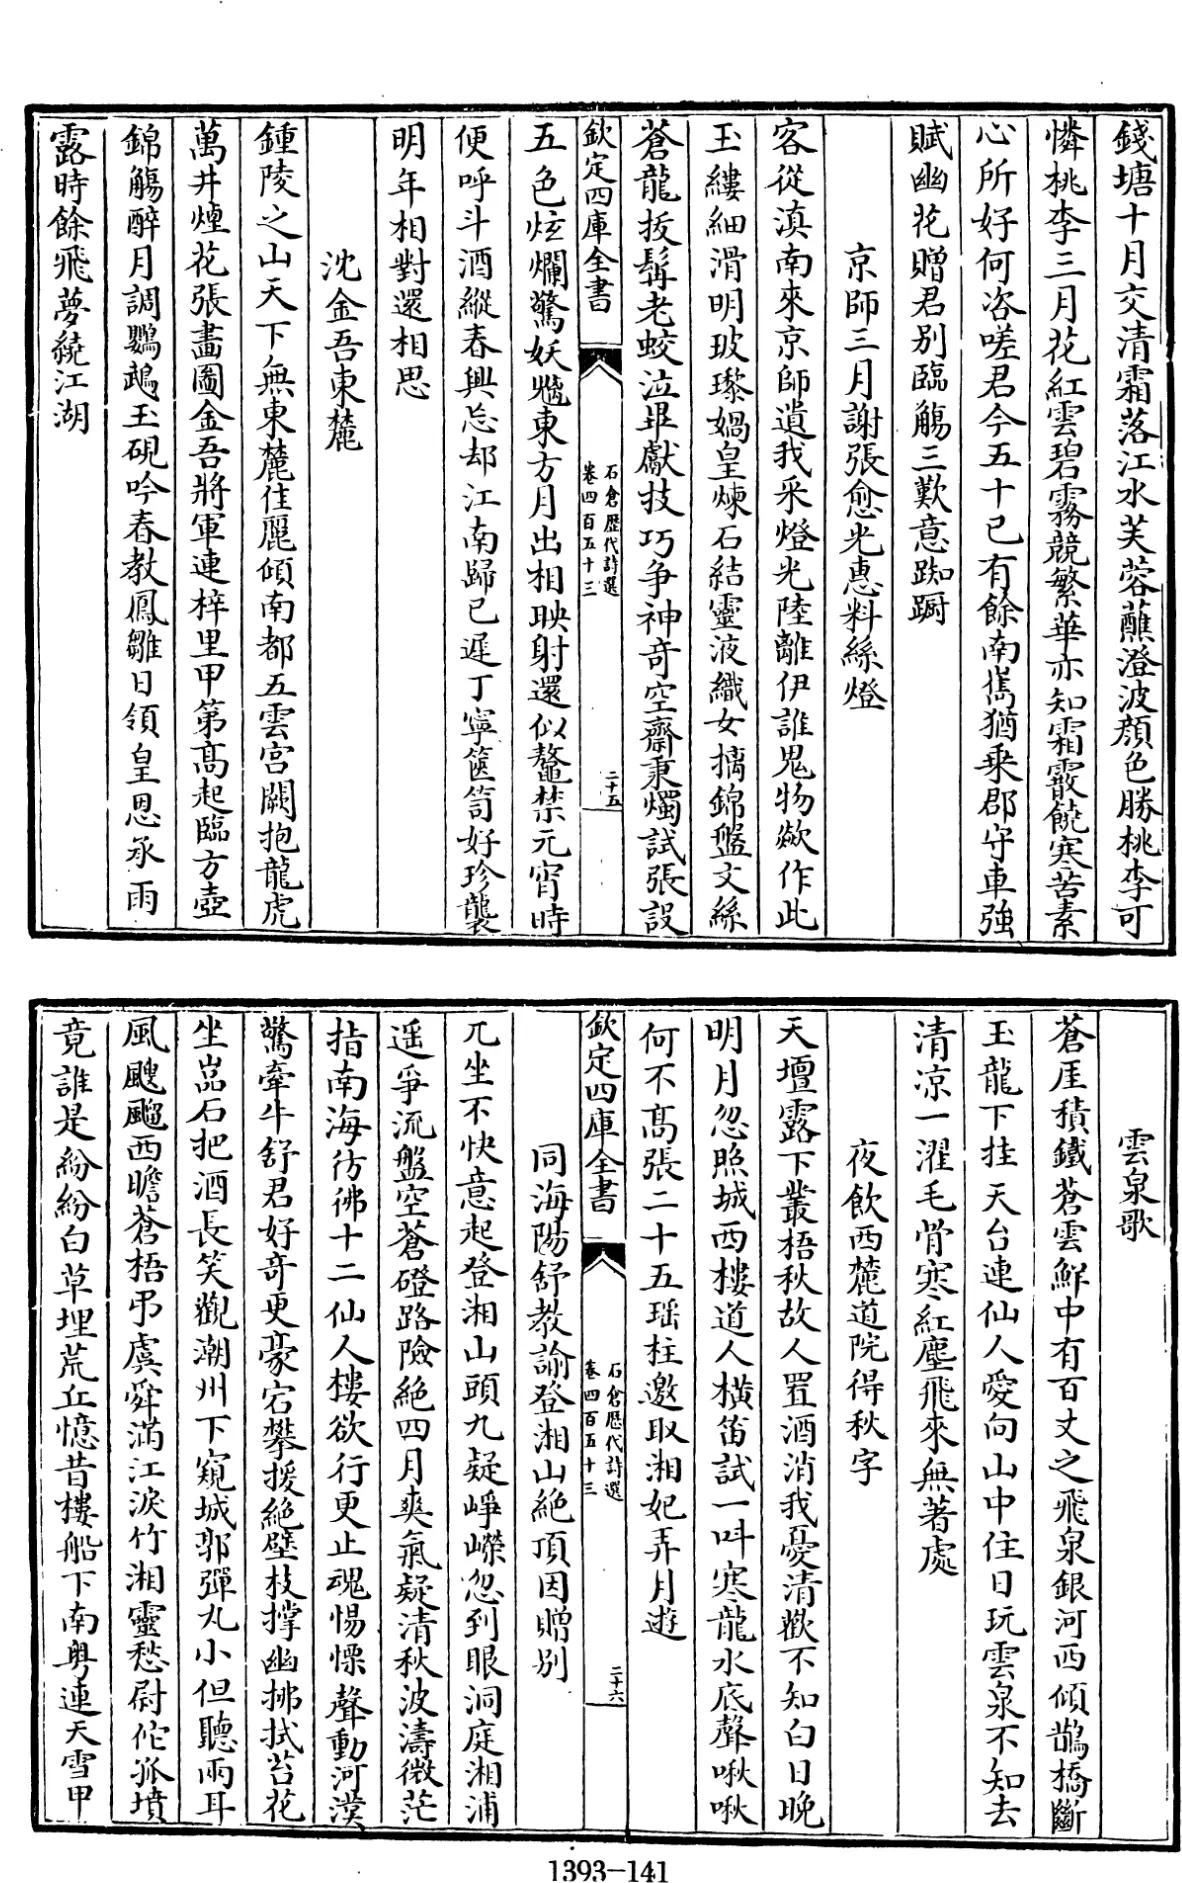 錢塘十月交清霜落江水芙蓉蘸澄波顔色勝桃李可
憐桃李三月花紅雲碧霧競繁華亦知霜霰饒寒苦素
心所好何咨嗟君今五十已有餘南雋猶乘郡守車強
賦幽花贈君别臨觴三歎意踟蹰
京師三月謝張愈光惠料絲燈
客從滇南來京師遺我采燈光陸離伊誰鬼物歘作此
玉縷細滑明玻瓈媧皇煉石結靈液織女摛錦盤文絲
蒼龍拔髯老蛟泣畢獻技巧争神奇空齋秉燭試張設
欽定四庫全書
石倉歷代詩選
卷四百五十三
二十五
五色炫爛驚妖魑東方月出相映射還似鼇禁元宵時
便呼斗酒縱春興忘却江南歸已遲丁寧篋笥好珍襲
明年相對還相思
沈金吾東麓
鍾陵之山天下無東麓佳麗傾南都五雲宮闕抱龍虎
萬井煙花張畫圖金吾將軍連梓里甲第高起臨方壺
錦觴醉月調鸚鵡玉硯吟春教鳳雛日領皇恩承雨
露時餘飛夢繞江湖
雲泉歌
蒼厓積鐵蒼雲鮮中有百丈之飛泉銀河西傾鵲橋斷
玉龍下挂天台連仙人愛向山中住日玩雲泉不知去
清凉一濯毛骨寒紅塵飛來無著處
夜飲西麓道院得秋字
天壇露下叢梧秋故人置酒消我憂清歡不知白日晚
明月忽照城西樓道人橫笛試一叫寒龍水底聲啾啾
何不高張二十五瑶柱邀取湘妃弄月遊
欽定四庫全書
石倉歷代詩選
卷四百五十三
二十六
同海陽舒教諭登湘山絶頂因贈别
兀坐不快意起登湘山頭九疑崢嶸忽到眼洞庭湘浦
遥爭流盤空蒼磴路險絶四月爽氣疑清秋波濤微茫
指南海彷彿十二仙人樓欲行更止魂惕慄聲動河漢
驚牽牛舒君好奇更豪宕攀援絶壁枝撑幽拂拭苔花
坐嵓石把酒長笑觀潮州下窺城郭彈丸小但聽兩耳
風颼飀西瞻蒼梧弔虞舜滿江淚竹湘靈愁尉佗孤墳
竟誰是紛紛白草埋荒丘憶昔樓船下南粤連天雪甲
1393-141